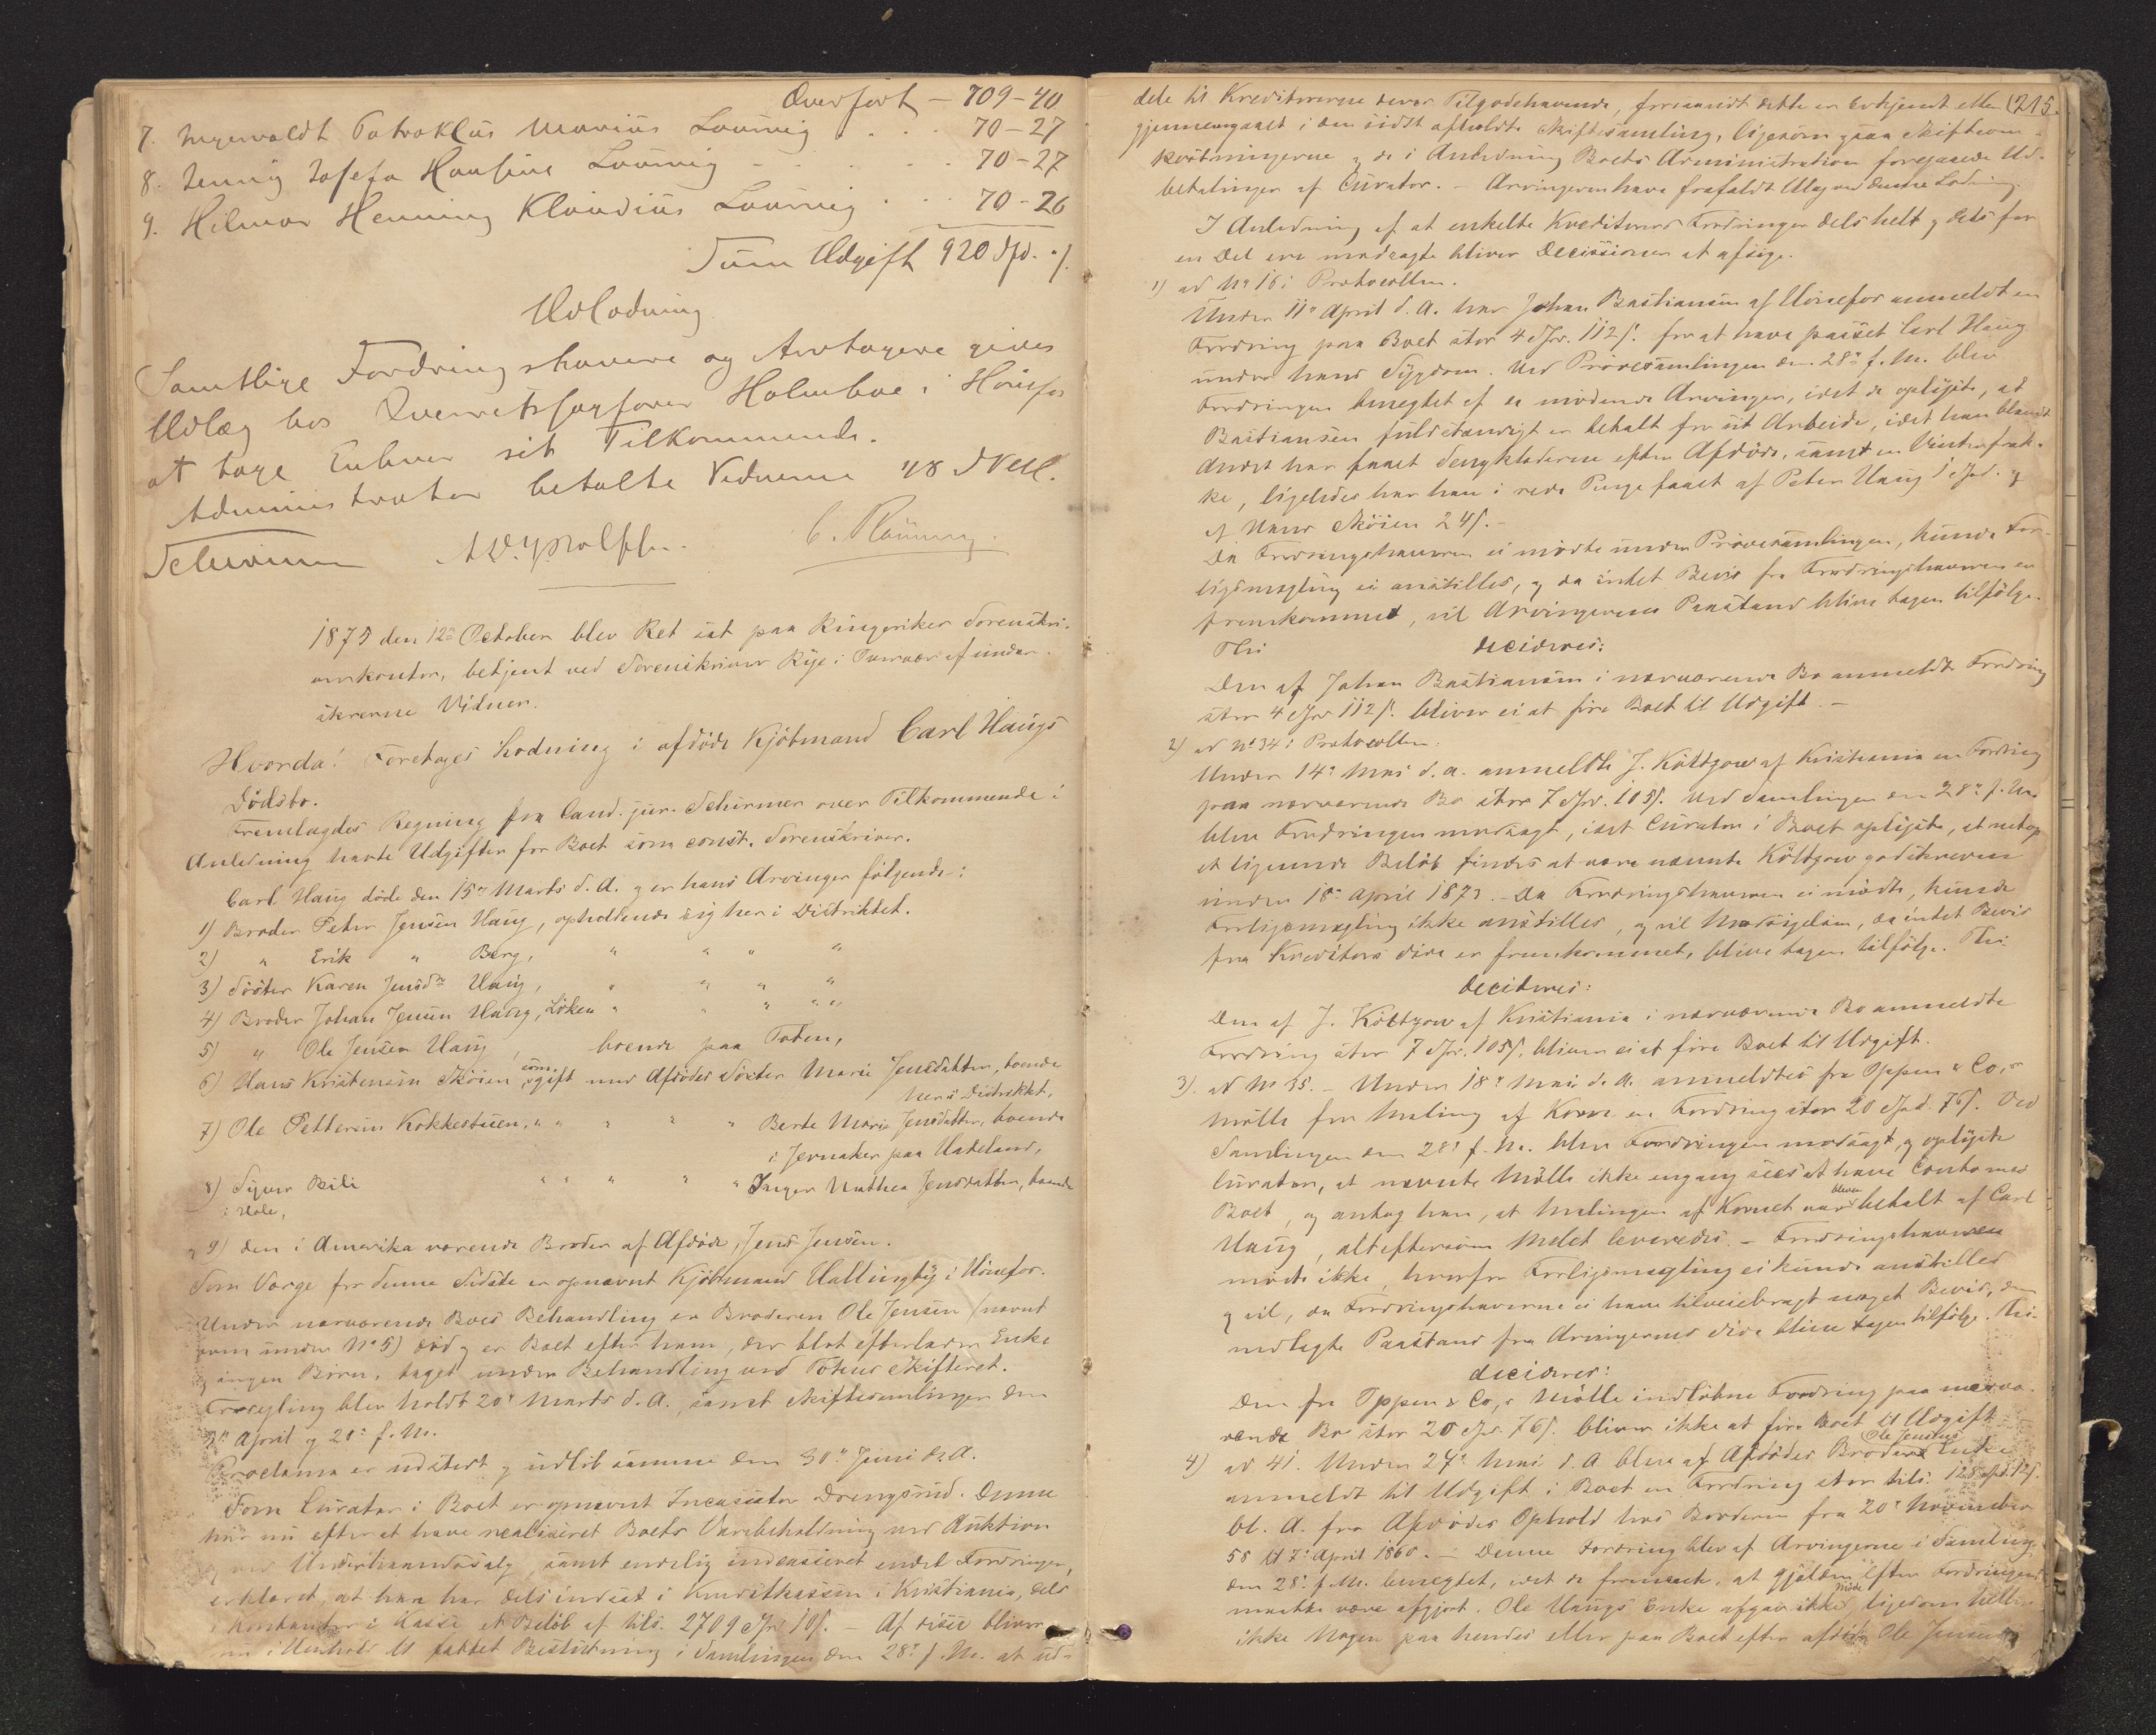 Overført — 709-40
7. Ingervaldt Patroklus Marius Lauvig . . . 70-27
8. Jenny Josefa Hansine Lauvig . . . 70-27
9. Hilmar Henning Klaudius Lauvig . . . 70-26
Sum Udgift 920 Spd. "/.
Udlodning
Samtlige Fordringshavere og Arvtagere gives
Udlæg hos Overretssagfører Holmboe i Hønefos
at tage Enhver sit Tilkommende.
Administrator betalte Vidnerne 48 s.
Schirmer C. Rønning.
1875 den 12te October blev Ret sat paa Ringerikes Sorenskri-
verkontor, betjent ved Sorenskriver Rye i Overvær af under-
skrevne Vidner.
Hvorda: Foretoges Lodning i afdøde Kjøbmand Carl Haugs
Dødsbo.
Fremlagdes Regning fra Cand. jur. Schirmer over Tilkommende i
Anledning havte Udgifter for Boet som const. Sorenskriver.
Carl Haug døde den 15de Marts d. A. og er hans Arvinger følgende:
1) Broder Peter Jensen Haug, opholdende sig her i Distriktet.
2) " Erik " Berg, " " " "
3) Søster Karen Jensdr Haug, " " " "
4) Broder Johan Jensen Haug, Løken " " " " "
5) " Ole Jensen Haug, boende paa Toten,
6) Hans Kristensen Skøien som gift med Afdødes Søster Marie Jensdatter, boende
her i Distriktet,
7) Ole Pettersen Kokkestuen, " " " " " Berte Marie Jensdatter, boende
i Jevnaker paa Hadeland,
8) Syver Bili " " " " " Inger Mathea Jensdatter, boende
i Hole,
og 9) den i Amerika værende Broder af Afdøde, Jens Jensen.
Som Værge for denne Sidste er opnævnt Kjøbmand Hallingby i Hønefos.
Under nærværende Boes Behandling er Broderen Ole Jensen (nævnt
som under No 5) død og er Boet efter ham, der blot efterlader Enke
og ingen Børn, taget under Behandling ved Totens Skifteret.
Forsegling blev holdt 20de Marts d. A., samt Skiftesamlinger den
April og 28de f. M.
Proclama er udstedt og udløb samme den 30te Juni d. A.
Som Curator i Boet er opnævnt Incassator Drengsrud. Denne
har nu efter at have realiseret Boets Varebeholdning ved Auktion
og ved Underhaandssalg, samt endelig indcasseret endel Fordringer,
erklæret, at han har dels indsat i Kreditkassen i Kristiania, dels
i Kontanter i Kasse et Beløb af tils. 2709 Spd 10 s. — Af disse bliver
nu i Henhold til fattet Beslutning i Samlingen den 28de f. M. at ud-
215.
dele til Kreditorerne deres Tilgodehavende, forsaavidt dette er vedkjendt eller
gjennemgaaet i den sidst afholdte Skiftesamling, ligesom ogsaa Skifteom-
kostningerne og de i Anledning Boets Administration foregaaede Ud-
betalinger af Curator. — Arvingerne have frafaldt Udlæg ved denne Lodning.
I Anledning af at enkelte Kreditorers Fordringer dels helt og dels for
en Del ere modsagte bliver Decisioner at afsige.
1) ad No 16 i Protocollen.
Under 11te April d. A. har Johan Bastiansen af Hønefos anmeldt en
Fordring paa Boet stor 4 Spd. 112 s. for at have passet Carl Haug
under hans Sygdom. Ved Prøvesamlingen den 28de f. M. blev
Fordringen benegtet af de mødende Arvinger, idet de oplyste, at
Bastiansen fuldstændigt er betalt for sit Arbeide, idet han blandt
Andet har faaet Sengklæderne efter Afdøde, samt en Vinterfrak-
ke, ligeledes har han i rede Penge faaet af Peter Haug 1 Spd. og
af Hans Skøien 24 s. —
Da Fordringshaveren ei mødte under Prøvesamlingen, kunde For-
ligsmægling ei anstilles, og da intet Bevis fra Fordringshaveren er
fremkommet, vil Arvingernes Paastand blive tagen tilfølge.
Thi decideres:
Den af Johan Bastiansen i nærværende Bo anmeldte Fordring
stor 4 Spd 112 s. bliver ei at føre Boet til Udgift. —
2) ad No 34 i Protocollen.
Under 14de Mai d. A. anmeldte J. Költzow af Kristiania en Fordring
paa nærværende Bo stor 7 Spd. 105 s. Ved Samlingen den 28de f. M.
blev Fordringen modsagt, idet Curator i Boet oplyste, at netop
et lignende Beløb findes at være nævnte Költzow godskreven
under 18de April 1873. — Da Fordringshaveren ei mødte, kunde
Forligsmægling ikke anstilles, og vil Modsigelsen, da intet Bevis
fra Kreditors Side er fremkommet, blive tagen tilfølge. Thi
decideres:
Den af J. Költzow af Kristiania i nærværende Bo anmeldte
Fordring stor 7 Spd. 105 s. bliver ei at føre Boet til Udgift.
3) ad No 35. — Under 18de Mai d. A. anmeldtes fra Oppen & Co.s
Mølle for Maling af Korn en Fordring stor 20 Spd. 76 s. Ved
Samlingen den 28de f. M. blev Fordringen modsagt, og oplyste
Curator, at nævnte Mølle ikke engang sees at have Conto med
Boet, og antog han, at Malingen af Kornet var bleven betalt af Carl
Haug, alteftersom Melet leveredes. — Fordringshaveren
mødte ikke, hvorfor Forligsmægling ei kunde anstilles
og vil, da Fordringshaverne ei have tilveiebragt noget Bevis, den
nedlagte Paastand fra Arvingernes Side blive tagen tilfølge. Thi
decideres:
Den fra Oppen & Co.s Mølle indløbne Fordring paa nærvæ-
rende Bo stor 20 Spd. 76 s. bliver ikke at føre Boet til Udgift.
4) ad 41. Under 24de Mai d. A. blev af Afdødes Broder Ole Jensens Enke
anmeldt til Udgift i Boet en Fordring stor tils. 128 Spd. 12 s.
bl. A. fra Afdødes Ophold hos Broderen fra 20de November
58 til 7de April 1860. — Denne Fordring blev af Arvingerne i Samling
den 28de f. M. benegtet, idet de fremsatte, at Gjælden efter Fordringen
maatte være afgjort. Ole Haugs Enke afgav ikke Møde ligesom heller
ikke Nogen paa hendes eller paa Boet efter afdøde Ole Jensens